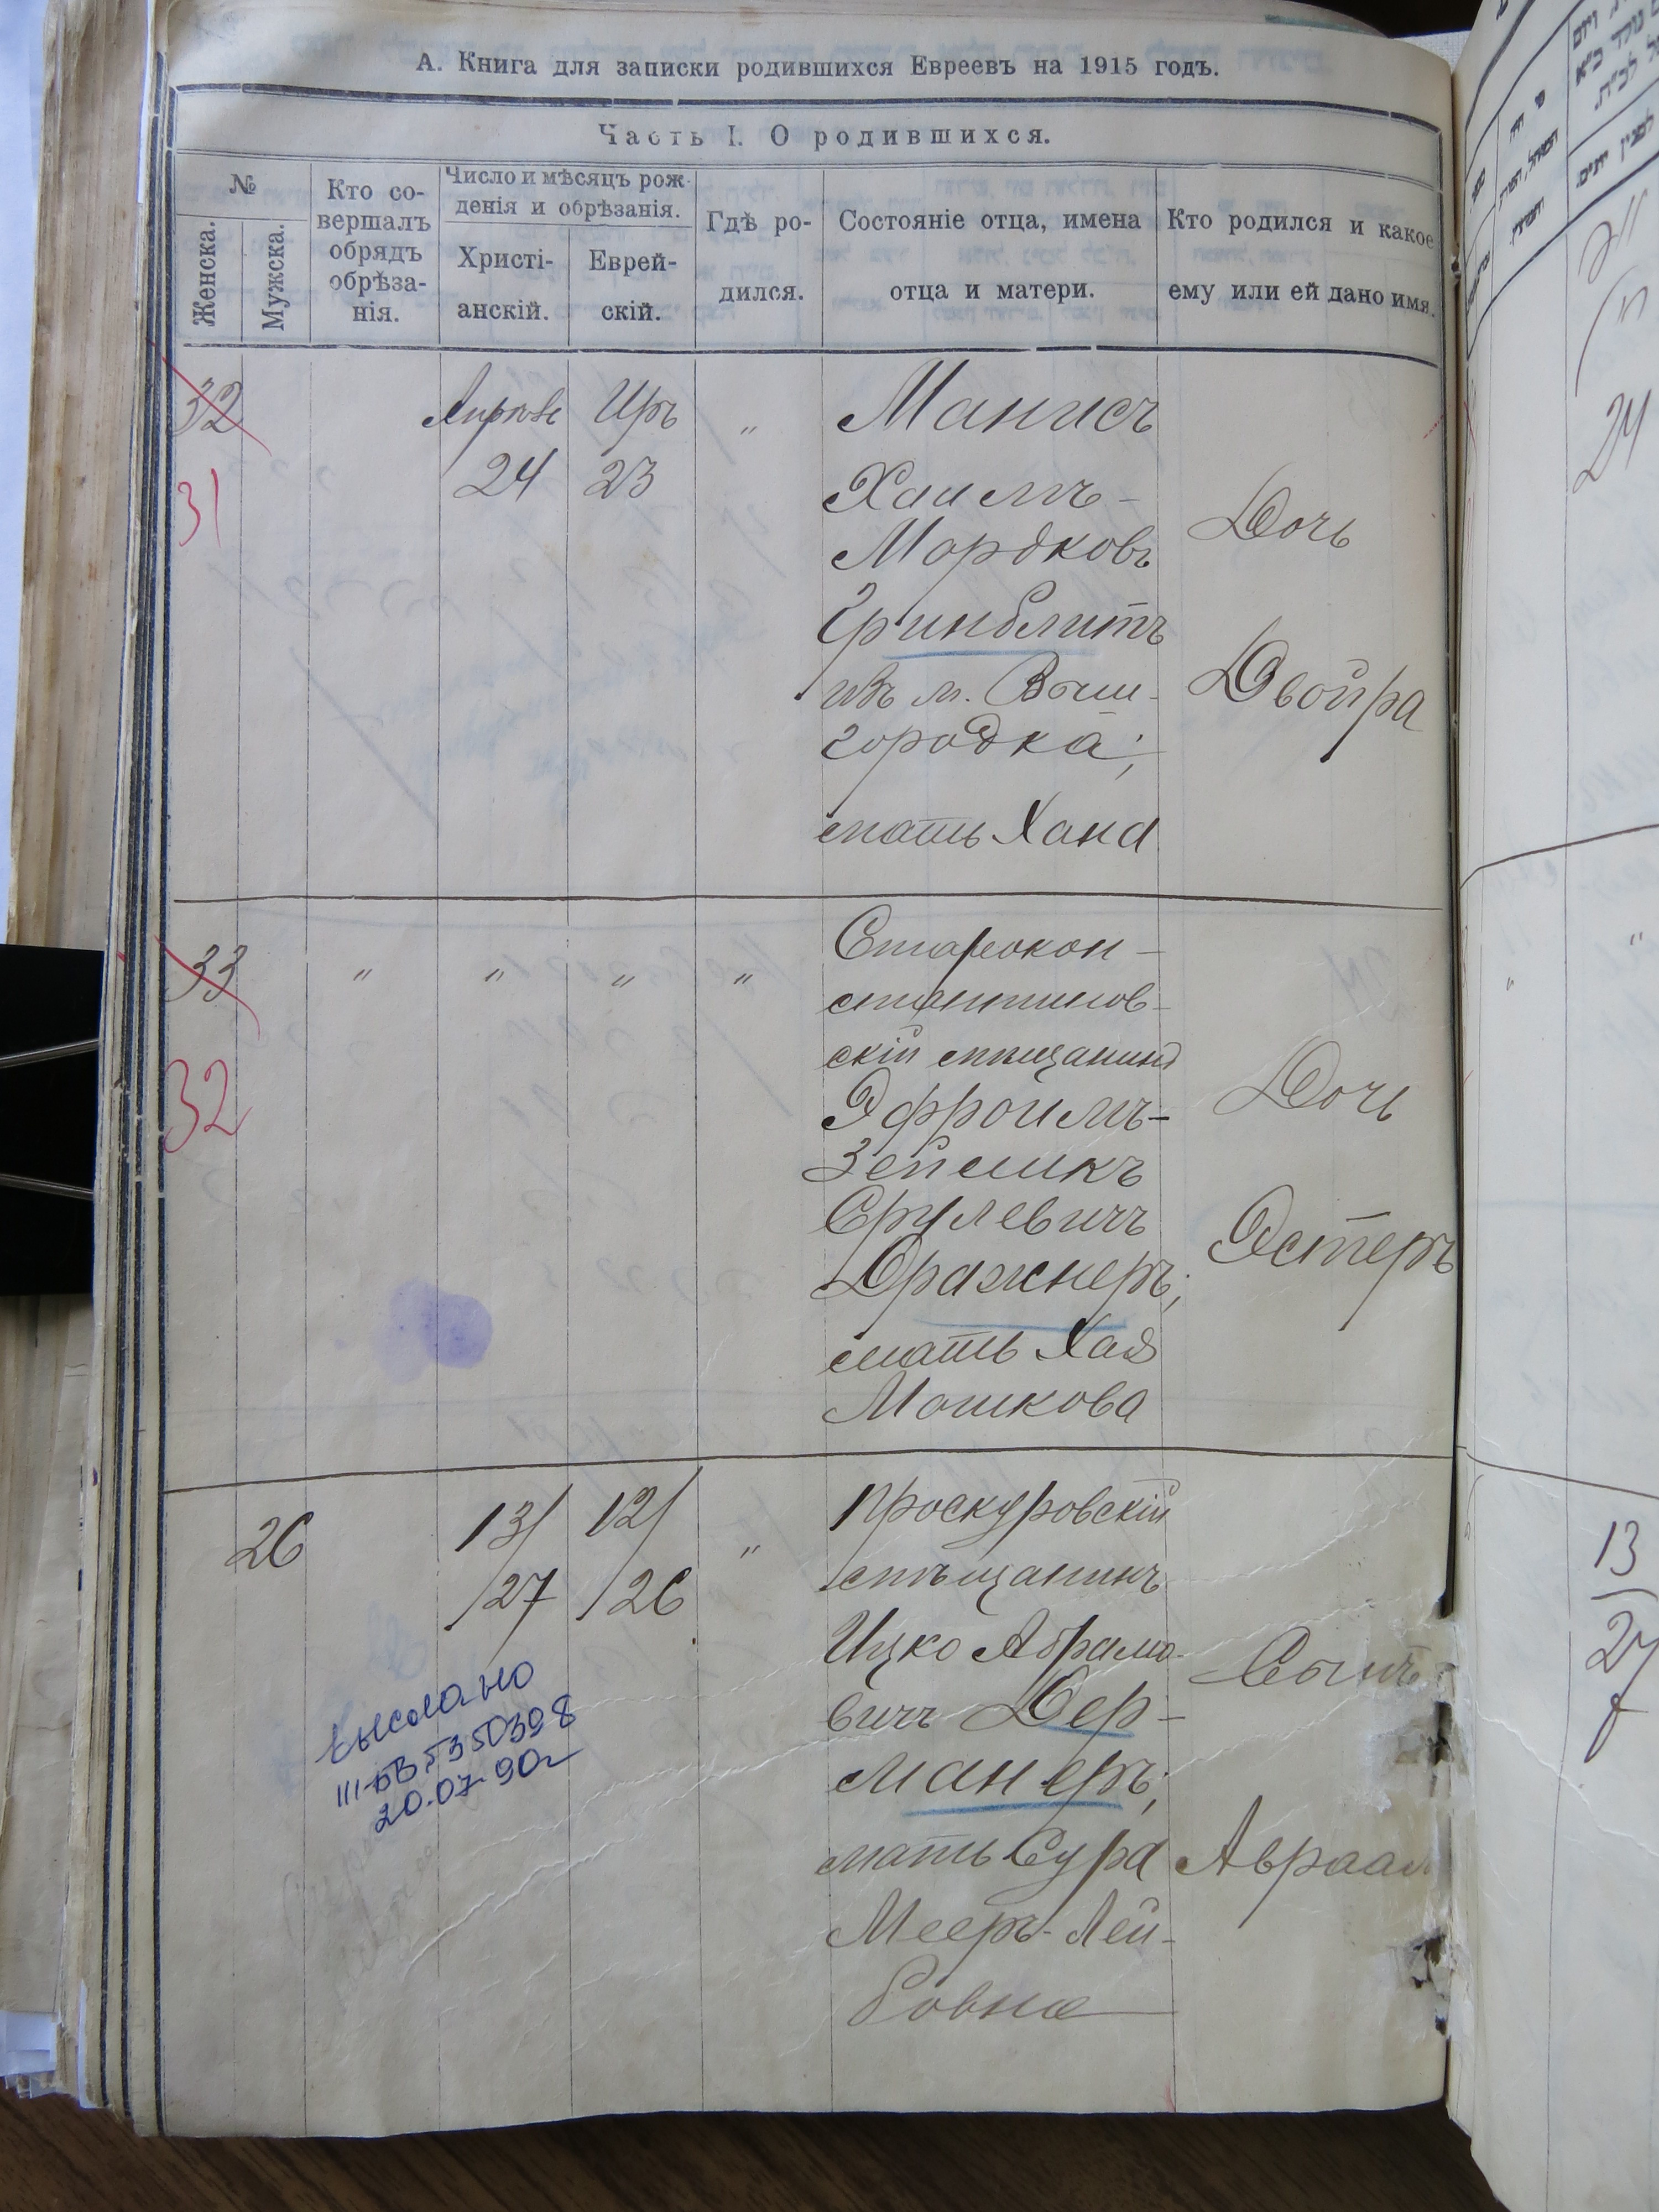 А. Книга для записки родившихся Евреевъ на 1915 годъ.
Часть I. О родившихся.
№
Женска.
Мужска.
Кто со-
вершалъ
обрядъ
обрѣза-
нія.
Число и мѣсяцъ рож-
денія и обрѣзанія.
Христі-
анскій.
Еврей-
скій.
Гдѣ ро-
дился.
Состояніе отца, имена
отца и матери.
Кто родился и какое
ему или ей дано имя.
32
31
Апрѣль
24
Иръ
23
"
Манисъ
Хаимъ-
Мордковъ
Гринблитъ
изъ м. Выш-
городка;
мать Хана
Дочь
Двойра
33
32
"
"
"
"
Старокон-
стантинов-
скій мѣщанинъ
Эфроимъ-
Зейликъ
Срулевичъ
Дражнеръ;
мать Хая
Мошкова
Дочь
Эстеръ
26
13/
/27
12/
/26
"
Проскуровскій
мѣщанинъ
Ицко Абрамо-
вичъ Дер-
манеръ;
мать Сура
Мееръ-Лей-
бовна
Сынъ
Авраам
выслано
20.07.90г
24
"
"
13
27